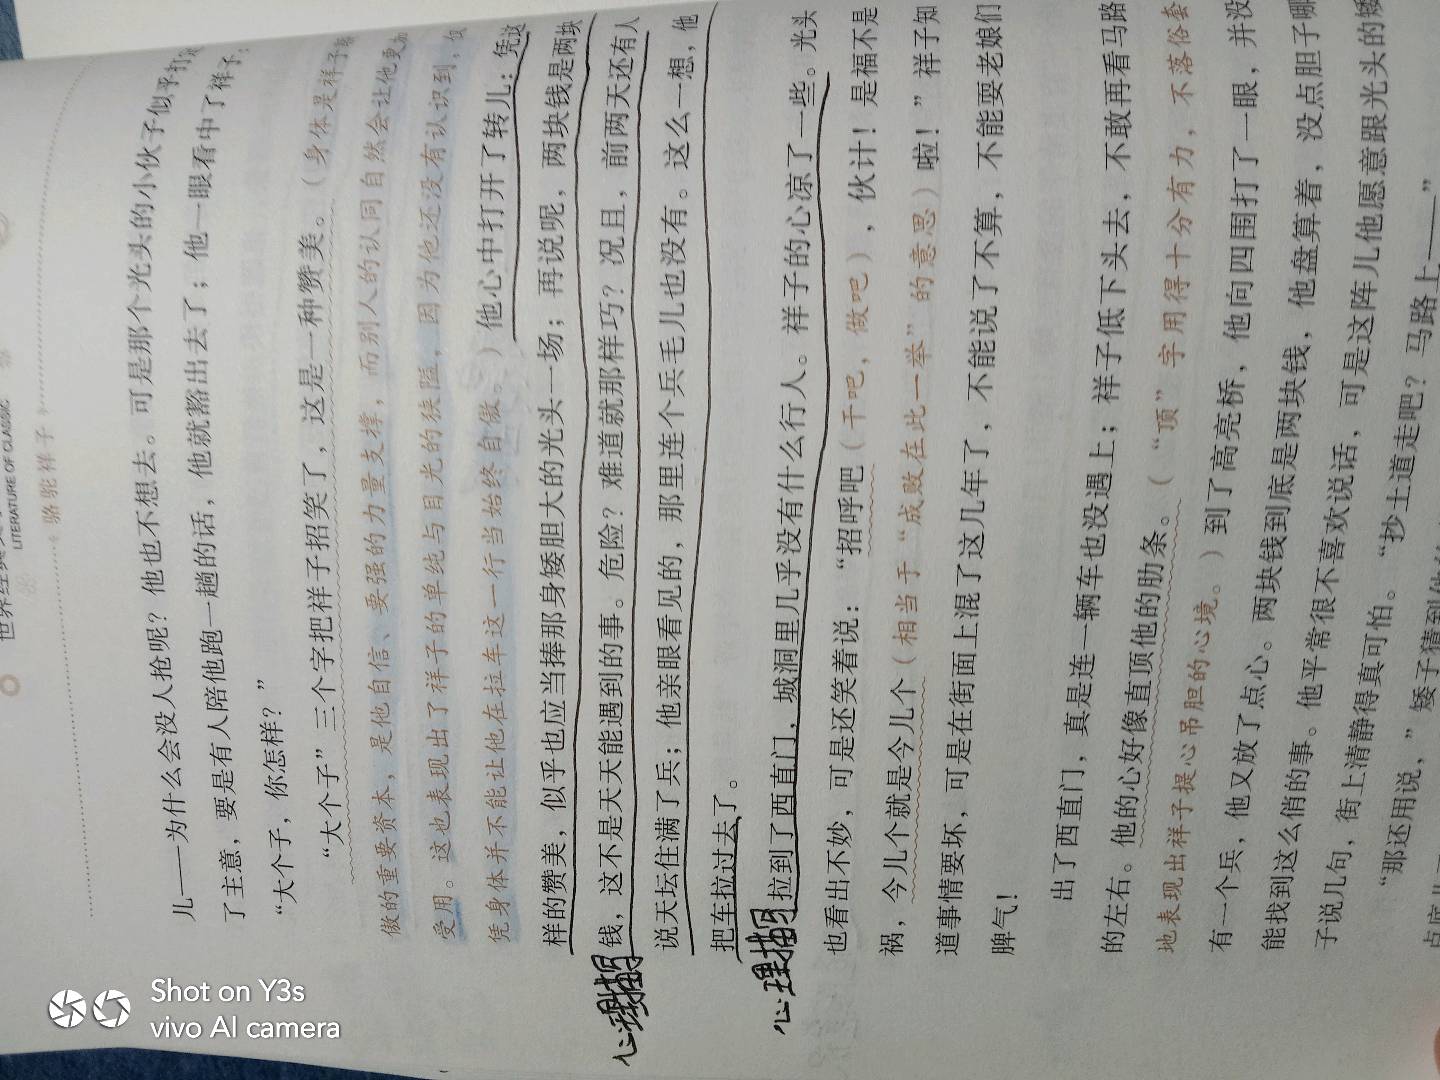 世界经典
LITERATURE OF CLASSIC
骆驼祥子
儿——为什么会没人抢呢？他也不想去。可是那个光头的小伙子似乎打定
了主意，要是有人陪他跑一趟的话，他就豁出去了；他一眼看中了祥子：
“大个子，你怎样？”
“大个子”三个字把祥子招笑了，这是一种赞美。（身体是祥子骄
傲的重要资本，是他自信、要强的力量支撑，而别人的认同自然会让他更加
受用。这也表现出了祥子的单纯与目光的狭隘，因为他还没有认识到，仅
凭身体并不能让他在拉车这一行当始终自傲。）他心中打开了转儿：凭这
样的赞美，似乎也应当捧那身矮胆大的光头一场；再说呢，两块钱是两块
钱，这不是天天能遇到的事。危险？难道就那样巧？况且，前两天还有人
说天坛住满了兵；他亲眼看见的，那里连个兵毛儿也没有。这么一想，他
把车拉过去了。
心理描写
拉到了西直门，城洞里几乎没有什么行人。祥子的心凉了一些。光头
心理描写
也看出不妙，可是还笑着说：“招呼吧（干吧，做吧），伙计！是福不是
祸，今儿个就是今儿个（相当于“成败在此一举”的意思）啦！”祥子知
道事情要坏，可是在街面上混了这几年了，不能说了不算，不能耍老娘们
脾气！
出了西直门，真是连一辆车也没遇上；祥子低下头去，不敢再看马路
的左右。他的心好像直顶他的肋条。（“顶”字用得十分有力，不落俗套
地表现出祥子提心吊胆的心境。）到了高亮桥，他向四围打了一眼，并没
有一个兵，他又放了点心。两块钱到底是两块钱，他盘算着，没点胆子哪
能找到这么俏的事。他平常很不喜欢说话，可是这阵儿他愿意跟光头的矮
子说几句，街上清静得真可怕。“抄土道走吧？马路上——”
“那还用说，”矮子猜到他的
Shot on Y3s
vivo AI camera